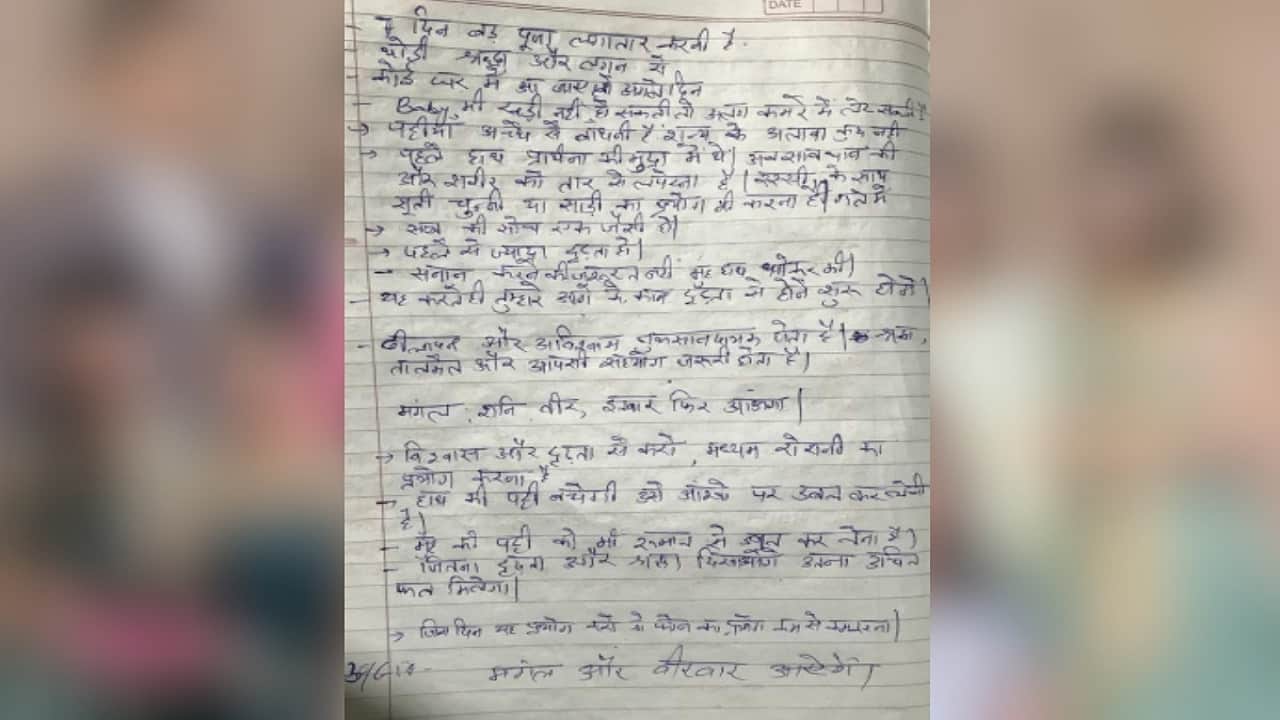 DATE
7 दिन बड़ पूजा लगातार करनी है.
थोड़ी श्रद्धा और लगन से
कोई घर में आ जाए तो अगले दिन
Baby भी खड़ी नहीं हो सकती तो अलग कमरे में लेट सकती है
→ पट्टियां अच्छे से बांधनी है शून्य के अलावा कुछ नही
→ पहले हाथ प्रार्थना की मुद्रा में थे। अब सावधान की
और शरीर को तार से लपेटना है। रस्सी के साथ
सूती चुन्नी या साड़ी का प्रयोग भी करना है। गले में
→ सब की सोच एक जैसी हो।
→ पहले से ज्यादा दृढ़ता हो।
- स्नान करने की जरूरत नही मुंह हाथ धोकर भी।
- यह करते ही तुम्हारे आगे के काम दृढ़ता से होने शुरू होगे।
- ढीलापन और अविश्वास नुकसानदायक होता है। श्रद्धा,
तालमेल और आपसी सहयोग जरूरी होता है।
मंगल, शनि, वीर, इतवार फिर आऊंगा।
→ विश्वास और दृढ़ता से करो, मध्यम रोशनी का
प्रयोग करना है
- हाथ की पट्टी बचेगी उसे आंखो पर डबल कर लेनी
है।
- मुंह की पट्टी को भी रुमाल से डबल कर लेना है।
- जितना दृढ़ता और श्रद्धा दिखाओगे उतना उचित
फल मिलेगा।
→ जिस दिन यह प्रयोग करो तो फोन का प्रयोग कम से कम करना।
मंगल और वीरवार आएंगे।